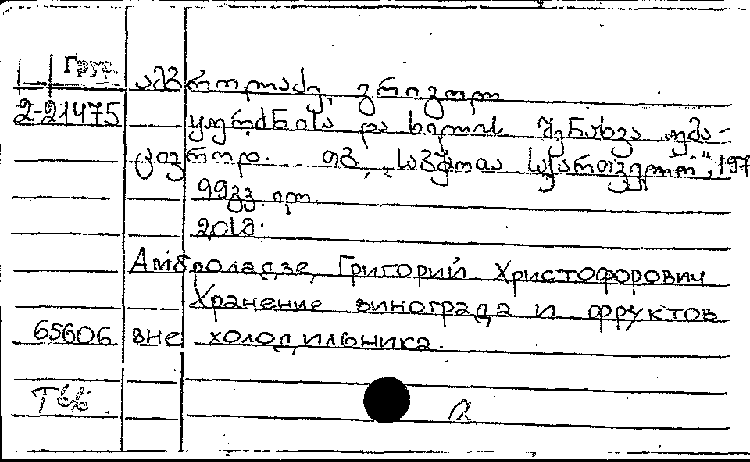 Груз.
2-21475
ამბროლაძე, გრიგოლ
ყურძნისა და ხილის შენახვა უმა-
ცივროდ. თბ., „საბჭოთა საქართველო", 197
99გვ. ილ.
20 კ.
Амброладзе, Григорий Христофорович
Хранение винограда и фруктов
65606 вне холодильника.